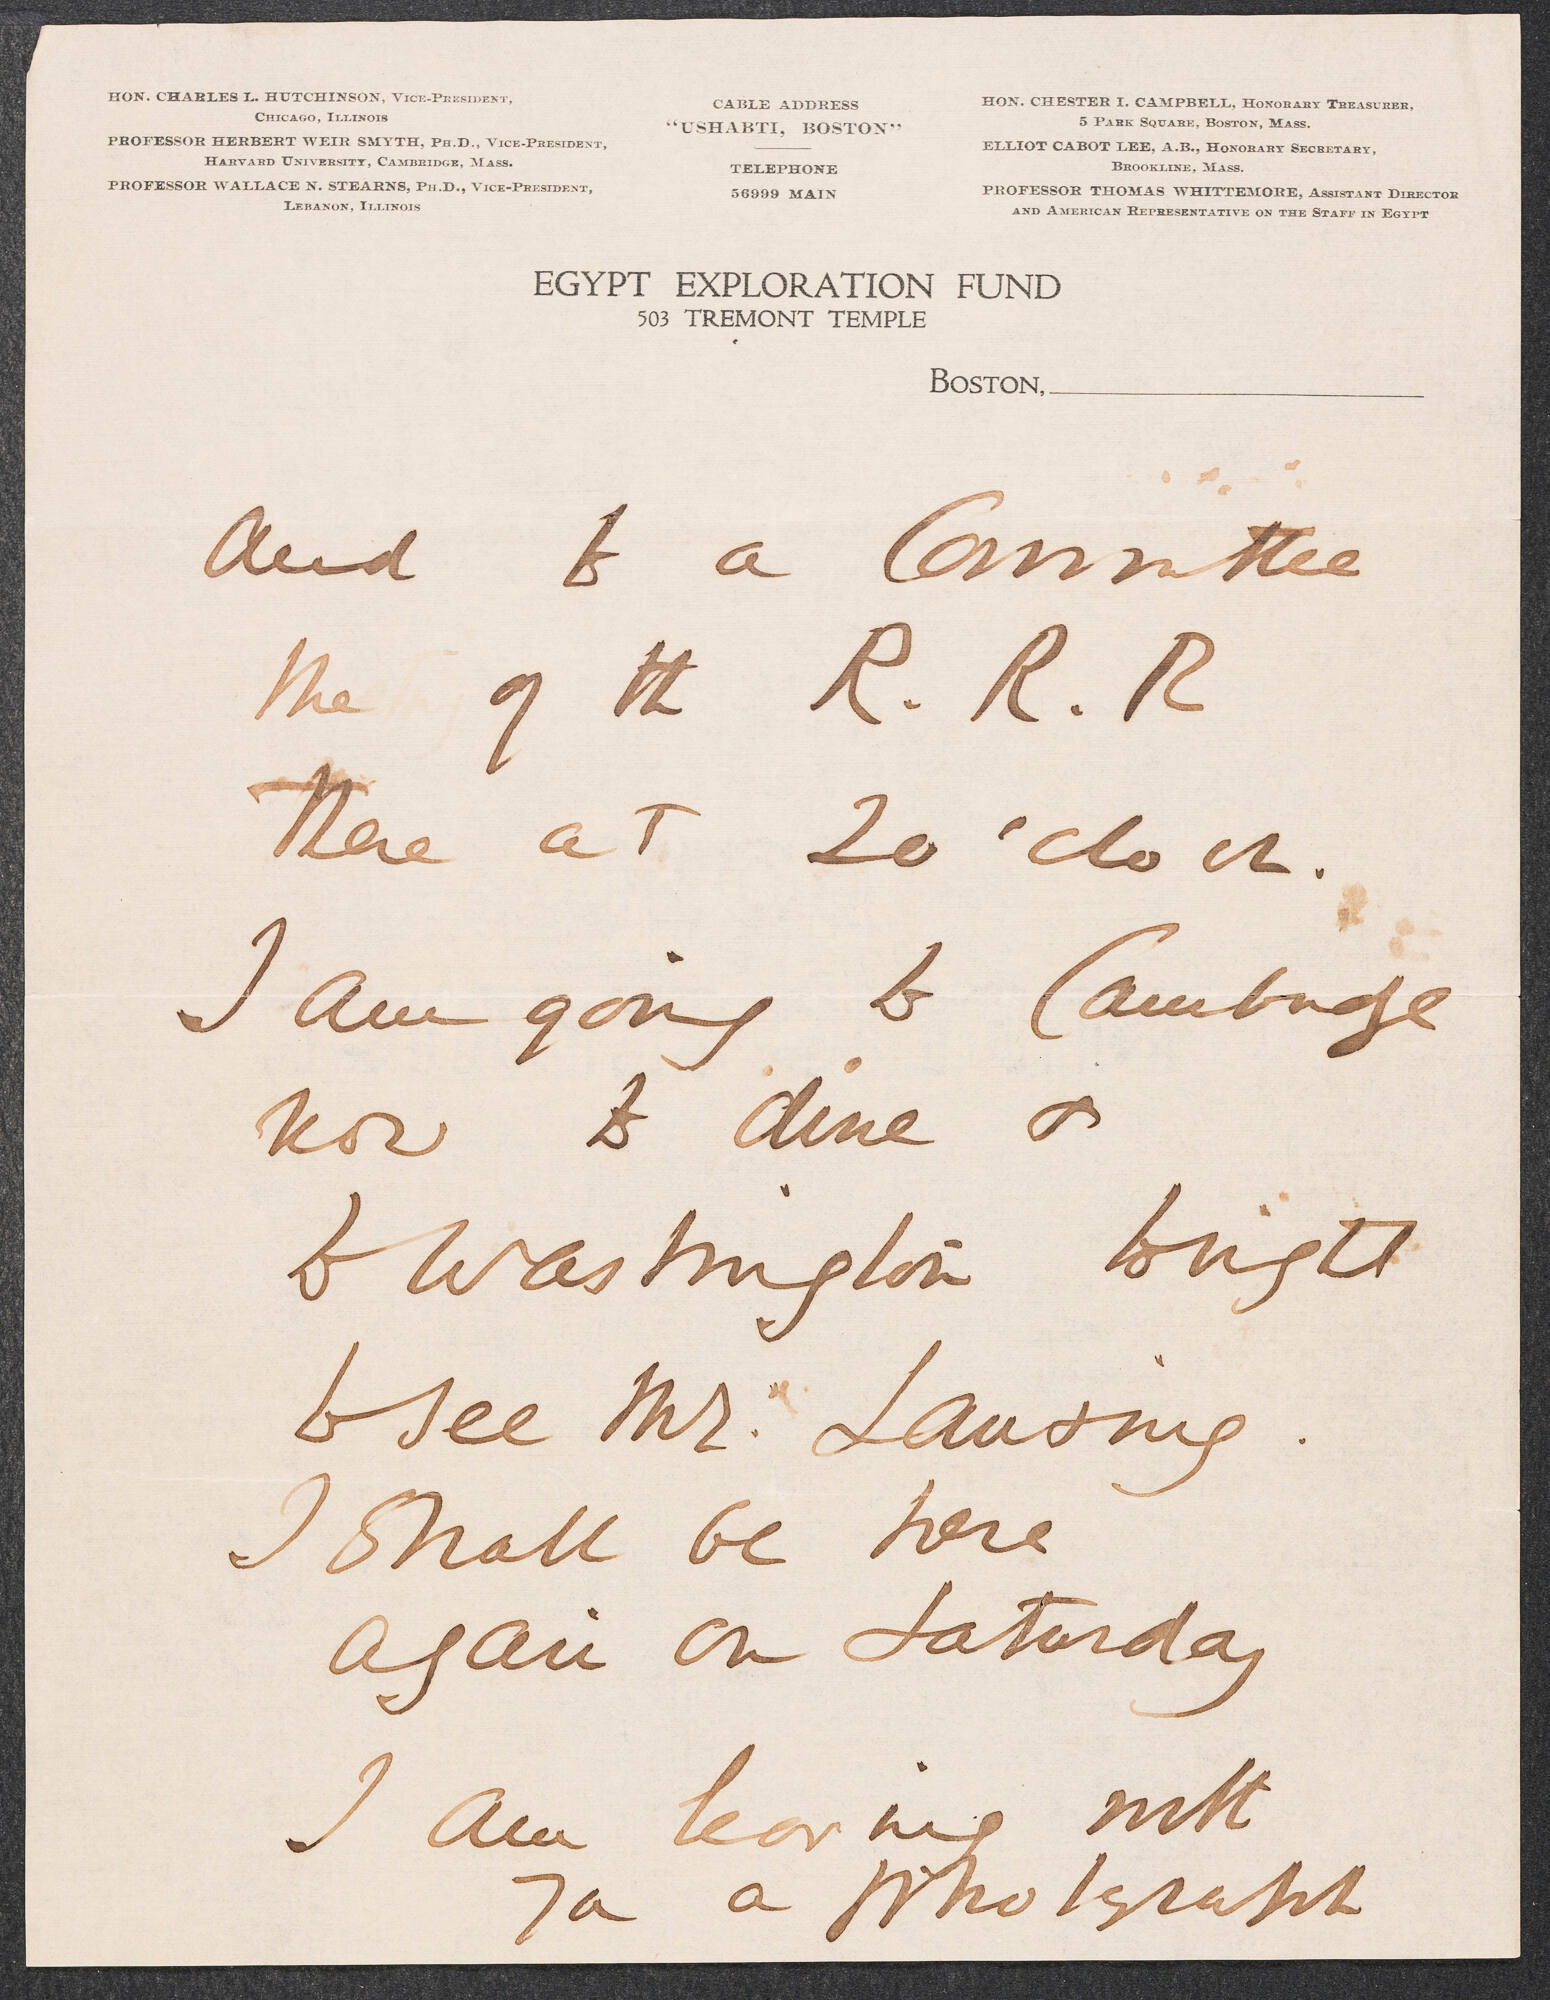 HON. CHARLES L. HUTCHINSON, VICE-PRESIDENT,
CHICAGO, ILLINOIS
PROFESSOR HERBERT WEIR SMYTH, PH.D., VICE-PRESIDENT,
HARVARD UNIVERSITY, CAMBRIDGE, MASS.
PROFESSOR WALLACE N. STEARNS, PH.D., VICE-PRESIDENT,
LEBANON, ILLINOIS
CABLE ADDRESS
"USHABTI, BOSTON"
TELEPHONE
56999 MAIN
HON. CHESTER I. CAMPBELL, HONORARY TREASURER,
5 PARK SQUARE, BOSTON, MASS.
ELLIOT CABOT LEE, A.B., HONORARY SECRETARY,
BROOKLINE, MASS.
PROFESSOR THOMAS WHITTEMORE, ASSISTANT DIRECTOR
AND AMERICAN REPRESENTATIVE ON THE STAFF IN EGYPT
EGYPT EXPLORATION FUND
503 TREMONT TEMPLE
BOSTON,
and to a Committee
of the R. R. R
there at 2 o'clock.
I am going to Cambridge
now to dine &
to Washington tonight
to see Mr. Lansing.
I shall be here
again on Saturday
I am leaving with
a photograph